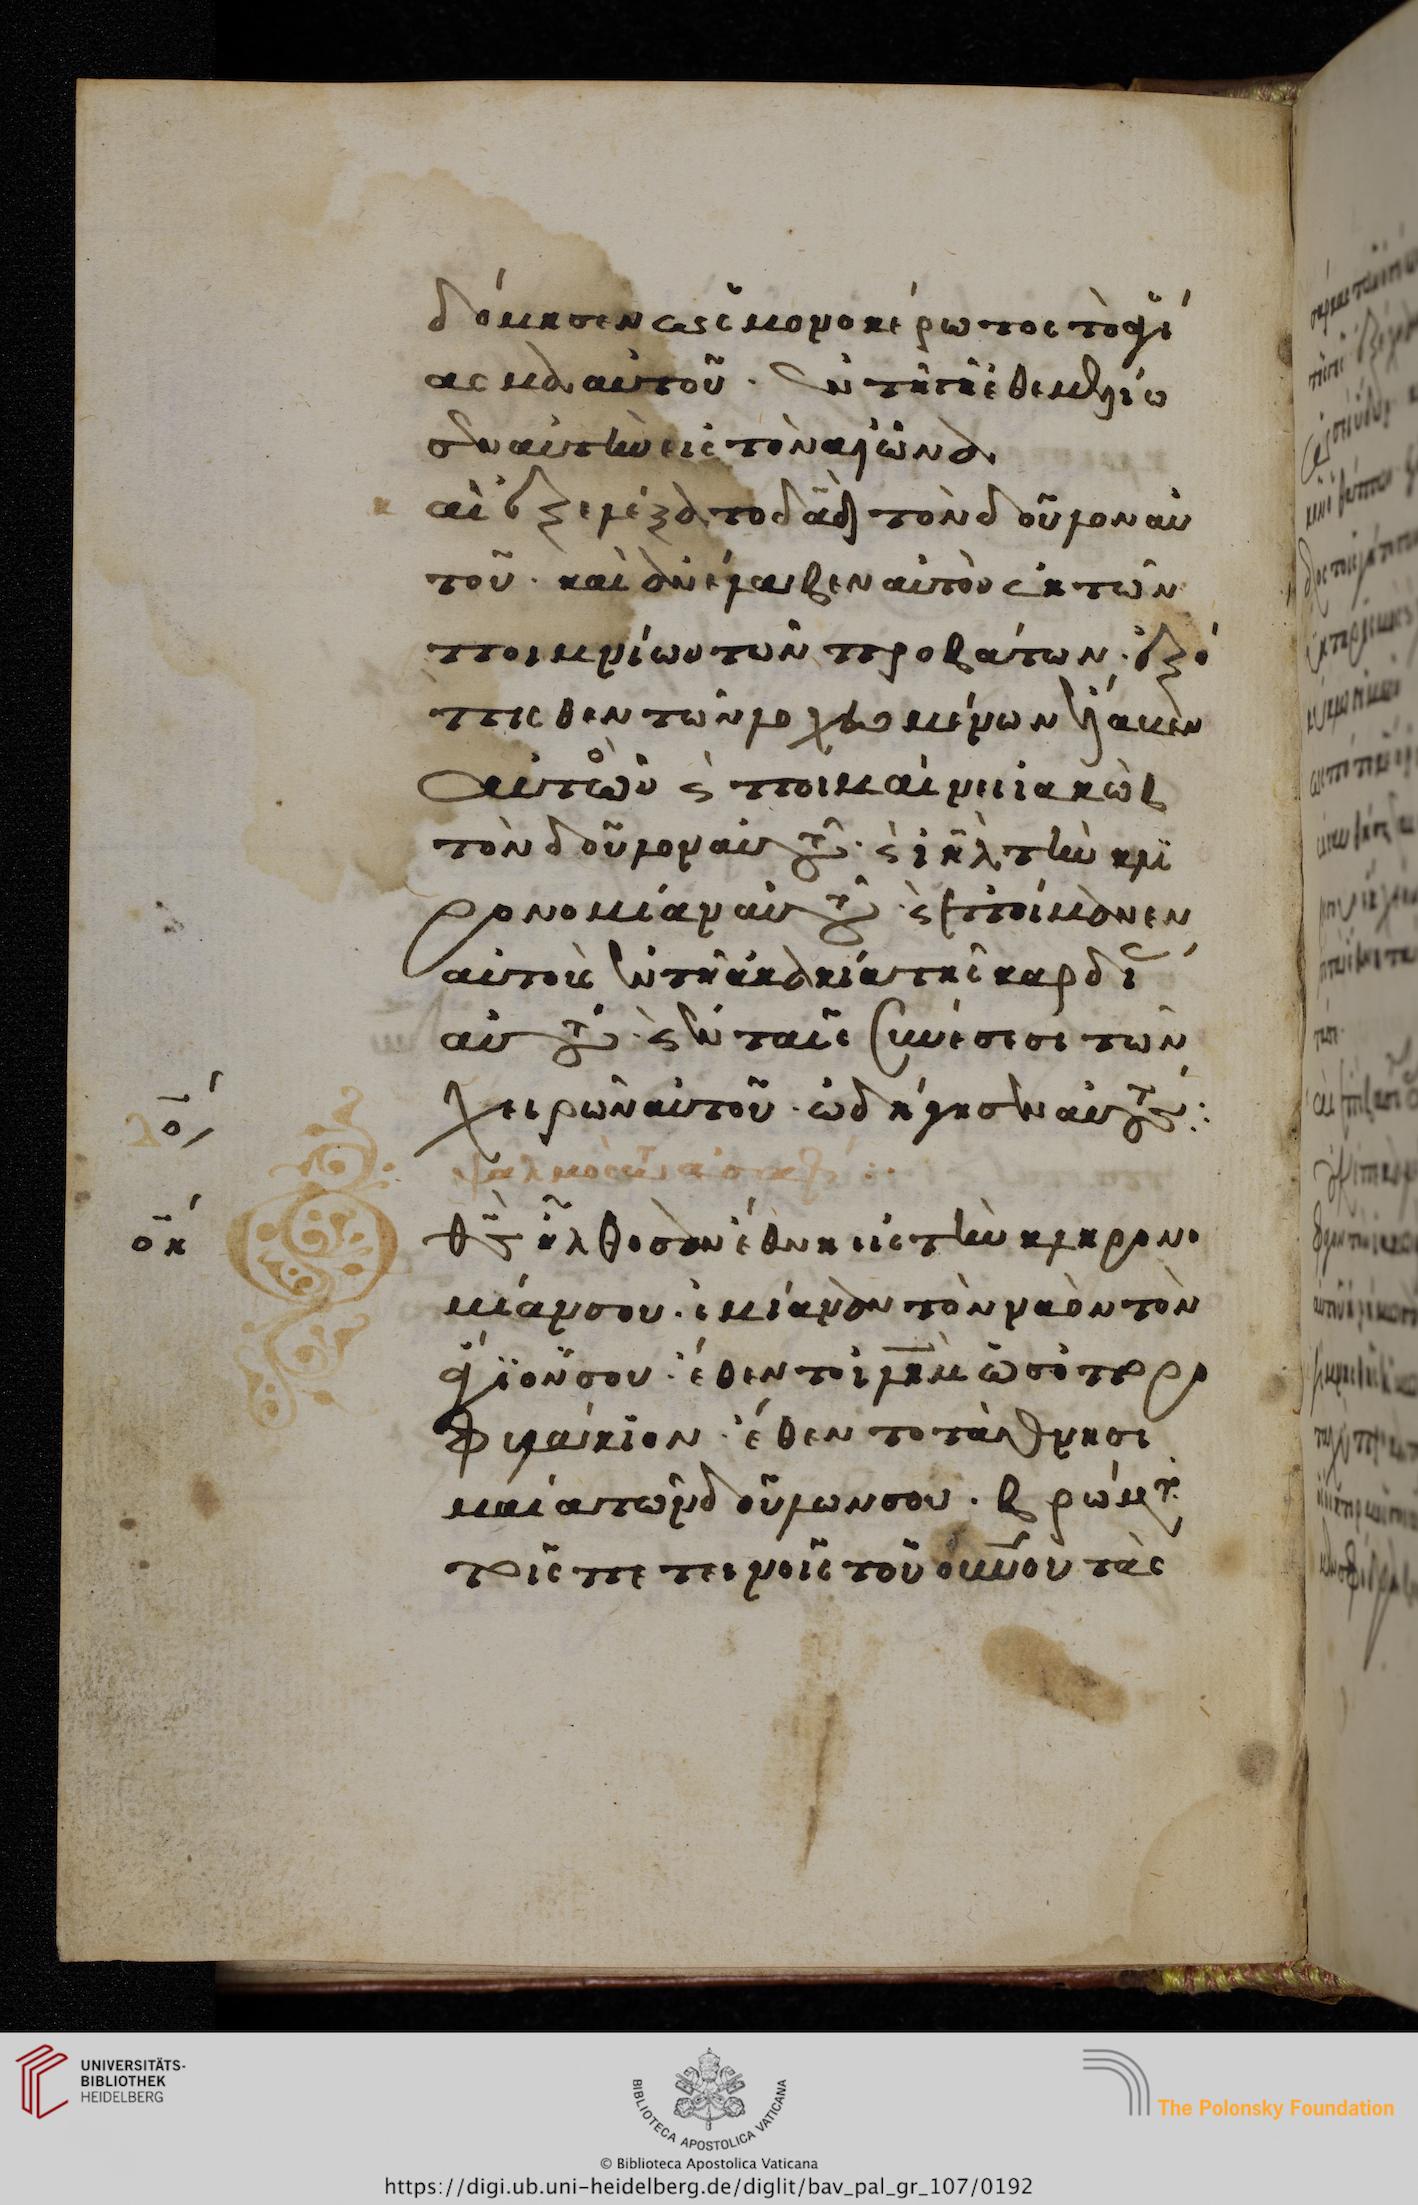 δόμησεν ὡς μονοκέρωτος τὸ ἁγί
ασμα αὐτοῦ · ἐν τῆ γῆ ἐθεμελίω
σεν αὐτὴν εἰς τὸν αἰῶνα
αὶ ἐξελέξατο δᾱδ τὸν δοῦλον αὐ
τοῦ · καὶ ἀνέλαβεν αὐτὸν ἐκ τῶν
ποιμνίων τῶν προβάτων · ἐξό
πισθεν τῶν λοχευομένων ἔλαβεν
αὐτὸν ποιμαίνειν ιακὼβ
τὸν δοῦλον αὐτοῦ · ϛ ιηλ τὴν κλη
ρονομίαν αὐτοῦ · ϛ ἐποίμανεν
αὐτοὺς ἐν τῆ ἀκακία τῆς καρδί
αὐτοῦ · ϛ ἐν ταῖς συνέσεσι τῶν
χειρῶν αὐτοῦ · ὡδήγησεν αὐτούς :
ψαλμὸς τῶ ἀσαφ
οη
θς ἤλθοσαν ἔθνη εἰς τὴν κληρονο
μίαν σου · ἐμίαναν τὸν ναὸν τὸν
ἅγιόν σου · ἔθεντο ιλημ ὡς ὀπωρο
φυλάκιον · ἔθεντο τὰ θνησι
μαῖα τῶν δούλων σου · βρώματα
τοῖς πετεινοῖς τοῦ οὐνου τὰς
UNIVERSITÄTS-
BIBLIOTHEK
HEIDELBERG
BIBLIOTECA APOSTOLICA VATICANA
The Polonsky Foundation
© Biblioteca Apostolica Vaticana
https://digi.ub.uni-heidelberg.de/diglit/bav_pal_gr_107/0192